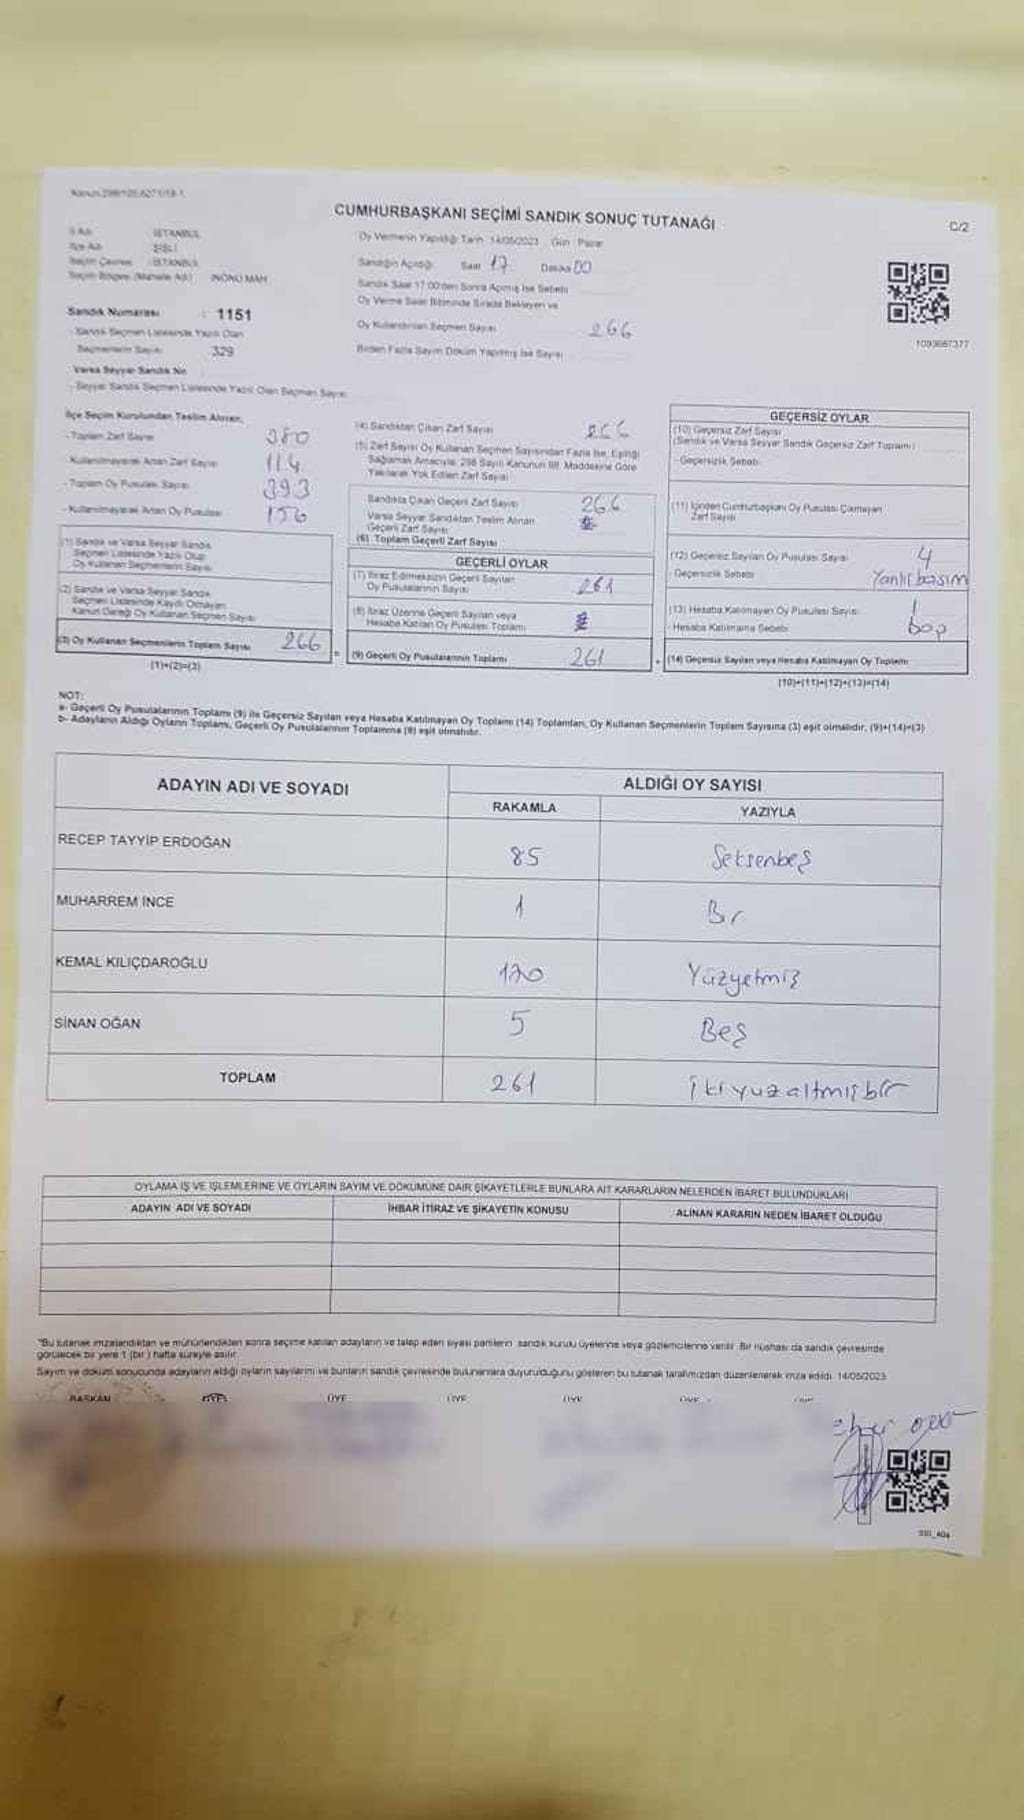 CUMHURBAŞKANI SEÇİMİ SANDIK SONUÇ TUTANAĞI
C/2
İl Adı : İSTANBUL
İlçe Adı : ŞİŞLİ
Seçim Çevresi : İSTANBUL
Seçim Bölgesi (Mahalle Adı) : İNÖNÜ MAH.
Sandık Numarası : 1151
- Sandık Seçmen Listesinde Yazılı Olan
Seçmenlerin Sayısı : 329
Varsa Seyyar Sandık No
- Seyyar Sandık Seçmen Listesinde Yazılı Olan Seçmen Sayısı
Oy Vermenin Yapıldığı Tarih : 14/05/2023 Gün : Pazar
Sandığın Açıldığı Saat 17 Dakika 00
Sandık Saat 17:00'den Sonra Açılmış İse Sebebi
Oy Verme Saati Bitiminde Sırada Bekleyen ve
Oy Kullandırılan Seçmen Sayısı 266
Birden Fazla Sayım Döküm Yapılmış İse Sayısı
1093667377
İlçe Seçim Kurulundan Teslim Alınan;
- Toplam Zarf Sayısı 380
- Kullanılmayarak Artan Zarf Sayısı 114
- Toplam Oy Pusulası Sayısı 393
- Kullanılmayarak Artan Oy Pusulası
(1) Sandık ve Varsa Seyyar Sandık
Seçmen Listesinde Yazılı Olup
Oy Kullanan Seçmenlerin Sayısı
(2) Sandık ve Varsa Seyyar Sandık
Seçmen Listesinde Kayıtlı Olmayan
Kanun Gereği Oy Kullanan Seçmen Sayısı
(3) Oy Kullanan Seçmenlerin Toplam Sayısı 266
(1)+(2)=(3)
(4) Sandıktan Çıkan Zarf Sayısı 266
(5) Zarf Sayısı Oy Kullanan Seçmen Sayısından Fazla İse, Eşitliği
Sağlamak Amacıyla; 298 Sayılı Kanunun 98. Maddesine Göre
Yakılarak Yok Edilen Zarf Sayısı
- Sandıkta Çıkan Geçerli Zarf Sayısı 266
Varsa Seyyar Sandıktan Teslim Alınan
Geçerli Zarf Sayısı
(6) Toplam Geçerli Zarf Sayısı
GEÇERLİ OYLAR
(7) İtiraz Edilmeksizin Geçerli Sayılan
Oy Pusulalarının Sayısı 261
(8) İtiraz Üzerine Geçerli Sayılan veya
Hesaba Katılan Oy Pusulası Toplamı
(9) Geçerli Oy Pusulalarının Toplamı 261
GEÇERSİZ OYLAR
(10) Geçersiz Zarf Sayısı
(Sandık ve Varsa Seyyar Sandık Geçersiz Zarf Toplamı)
- Geçersizlik Sebebi
(11) İçinden Cumhurbaşkanı Oy Pusulası Çıkmayan
Zarf Sayısı
(12) Geçersiz Sayılan Oy Pusulası Sayısı 4
- Geçersizlik Sebebi Yanlış basım
(13) Hesaba Katılmayan Oy Pusulası Sayısı 1
- Hesaba Katılmama Sebebi boş
(14) Geçersiz Sayılan veya Hesaba Katılmayan Oy Toplamı
(10)+(11)+(12)+(13)=(14)
NOT:
a- Geçerli Oy Pusulalarının Toplamı (9) ile Geçersiz Sayılan veya Hesaba Katılmayan Oy Toplamı (14) Toplamları, Oy Kullanan Seçmenlerin Toplam Sayısına (3) eşit olmalıdır, (9)+(14)=(3)
b- Adayların Aldığı Oyların Toplamı, Geçerli Oy Pusulalarının Toplamına (9) eşit olmalıdır.
ADAYIN ADI VE SOYADI ALDIĞI OY SAYISI
RAKAMLA YAZIYLA
RECEP TAYYİP ERDOĞAN 85 Seksenbeş
MUHARREM İNCE 1 Bir
KEMAL KILIÇDAROĞLU 170 Yüzyetmiş
SİNAN OĞAN 5 Beş
TOPLAM 261 ikiyüzaltmışbir
OYLAMA İŞ VE İŞLEMLERİNE VE OYLARIN SAYIM VE DÖKÜMÜNE DAİR ŞİKAYETLERLE BUNLARA AİT KARARLARIN NELERDEN İBARET BULUNDUKLARI
ADAYIN ADI VE SOYADI İHBAR İTİRAZ VE ŞİKAYETİN KONUSU ALINAN KARARIN NEDEN İBARET OLDUĞU
"Bu tutanak imzalandıktan ve mühürlendikten sonra seçime katılan adayların ve talep eden siyasi partilerin sandık kurulu üyelerine veya gözlemcilerine verilir. Bir nüshası da sandık çevresinde
görülecek bir yere 1 (bir) hafta süreyle asılır.
Sayım ve döküm sonucunda adayların aldığı oyların sayılarını ve bunların sandık çevresinde bulunanlara duyurulduğunu gösteren bu tutanak tarafımızdan düzenlenerek imza edildi. 14/05/2023
BAŞKAN ÜYE ÜYE ÜYE ÜYE